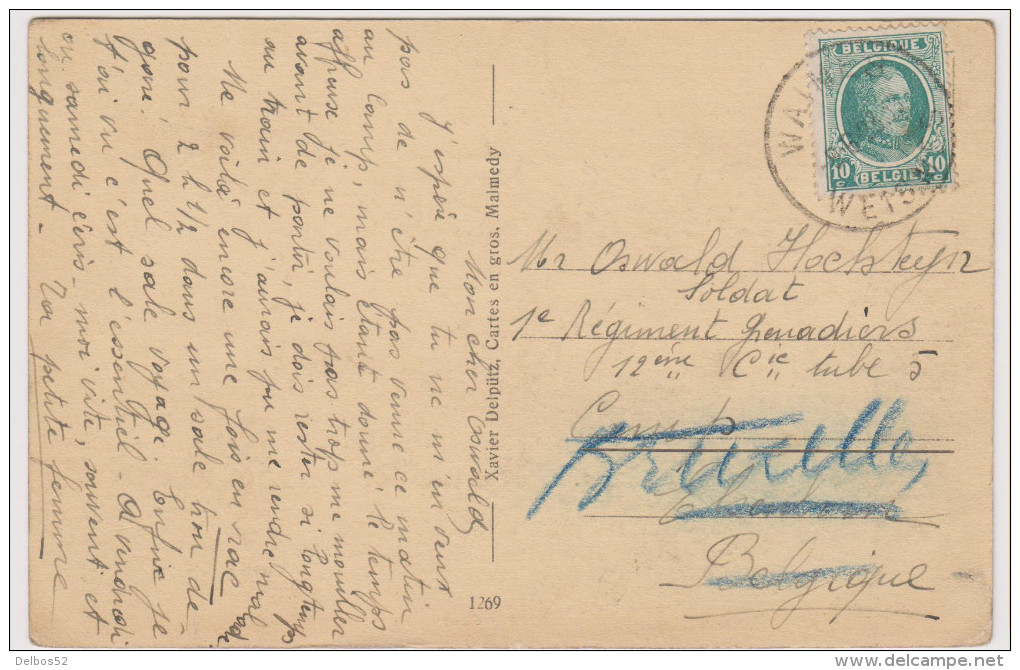 Mon cher Oswald
J'espère que tu ne m'in veux
pas de n'être pas venue ce matin
au camp, mais étant donné le temps
affreuse je ne voulais pas trop me mouiller
avant de partir, je dois rester si longtemps
au train et j'aurais pu me rendre malade
Me voilà encore une fois en rac
pour 2 h 1/2 dans un sale trou de
gare! Quel sale voyage. Enfin je
t'ai vu c'est l'essentiel - A vendredi
ou samedi écris-moi vite, souvent et
longuement - Ta petite femme
Xavier Delpütz, Cartes en gros, Malmedy
1269
BELGIQUE
10 10
BELGIE
WAI
WETS
Mr Oswald Hocksteyn
Soldat
1e Régiment Grenadiers
12ème Cie tube 5
Camp
Bruxelles
Belgique
Delbos52
www.delcampe.net